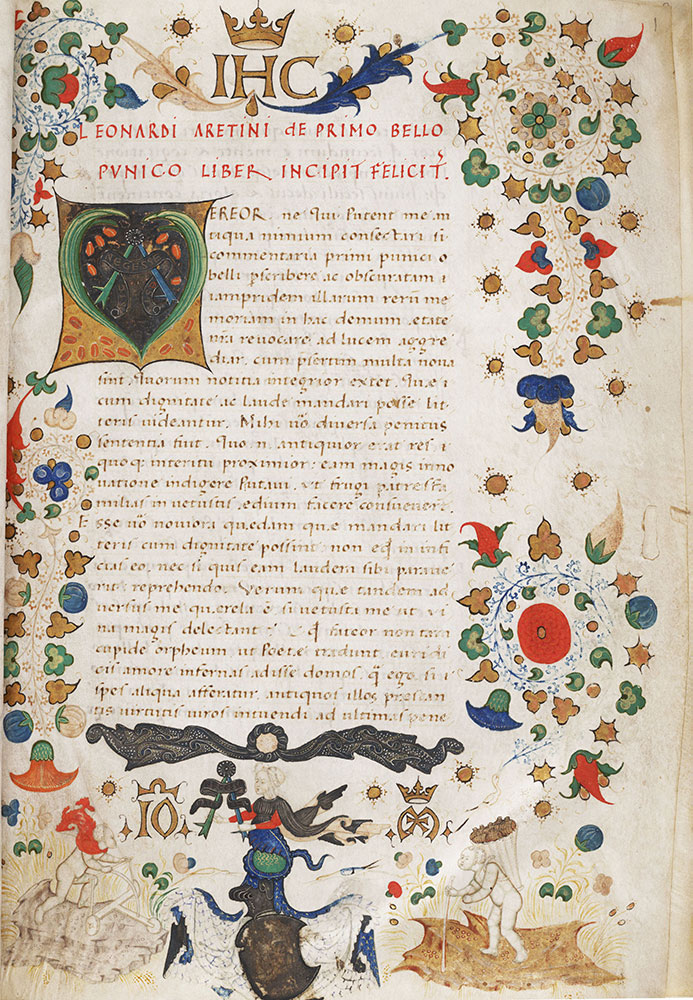 IHC
LEONARDI ARETINI de PRIMO BELLO
PVNICO LIBER INCIPIT FELICIT.
VEREOR. ne Qui Putent me an
tiqua nimium consectari si
commentaria primi punici o
belli pscribere ac obscuratam i
iampridem illarum rerū me
moriam in hac demum ętate
nr̄a revocare ad lucem aggre
diar. cum psertim multa nova
sint. Quorum notitia integrior extet. Quę i
cum dignitate ac laude mandari posse lit
teris videantur. Mihi uō diversa penitus
sententia fuit. Quo n. antiquior erat res, i
quoq; interitu proximior: eam magis inno
vatione indigere Putavi. ut frugi patresfa
milias in vetustis ędium facere consuevere.
Esse uō noviora quędam quę mandari lit
teris cum dignitate possint. non eq̄ in infi
cias eo. nec si quis eam laudem sibi paraue
rit reprehendo. Verum quę tandem ad
versus me quęrela ē si vetusta me ut vi
na magis delectant? Eq̄ fateor non tam
cupide orpheum ut Poetę tradunt euridi
cis amore infernas adisse domos. q̄ ego. si i
spes aliqua afferatur. antiquos illos prestan
tis virtutis viros intuendi ad ultimas pene